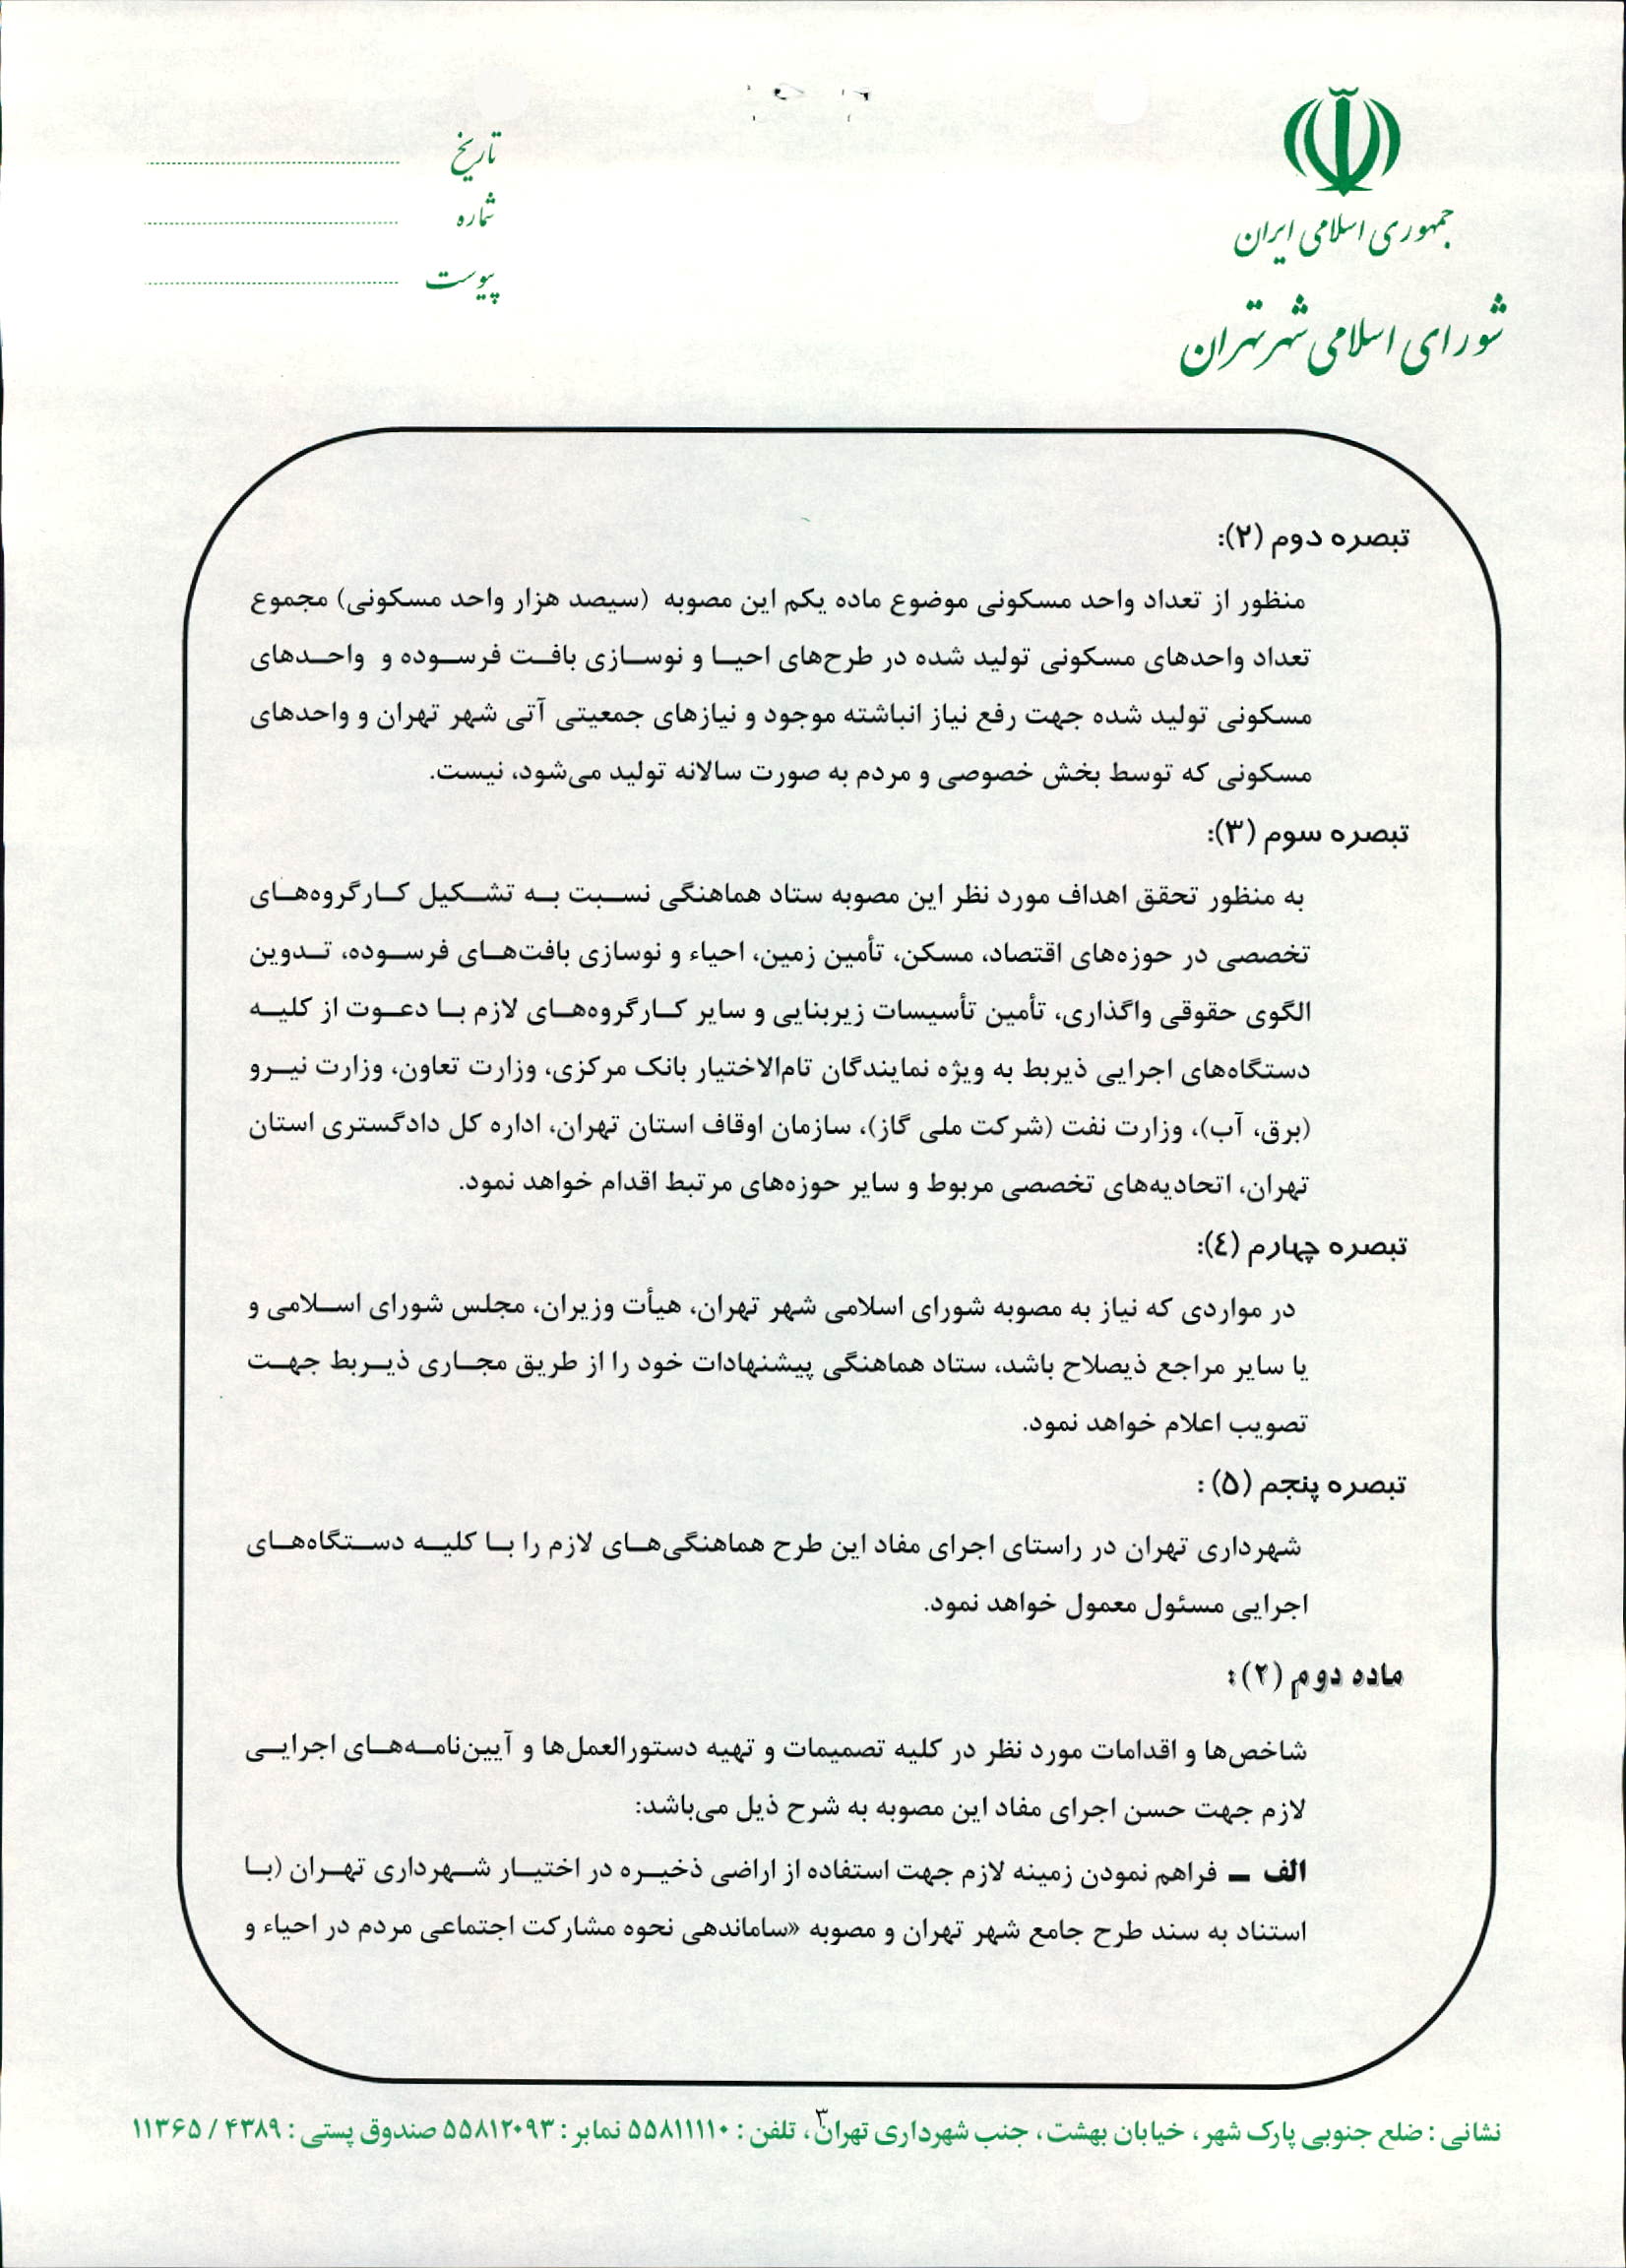 جمهوری اسلامی ایران
شورای اسلامی شهر تهران
تاریخ
شماره
پیوست
تبصره دوم (۲):
منظور از تعداد واحد مسکونی موضوع ماده یکم این مصوبه (سیصد هزار واحد مسکونی) مجموع
تعداد واحدهای مسکونی تولید شده در طرح‌های احیا و نوسازی بافت فرسوده و واحدهای
مسکونی تولید شده جهت رفع نیاز انباشته موجود و نیازهای جمعیتی آتی شهر تهران و واحدهای
مسکونی که توسط بخش خصوصی و مردم به صورت سالانه تولید می‌شود، نیست.
تبصره سوم (۳):
به منظور تحقق اهداف مورد نظر این مصوبه ستاد هماهنگی نسبت به تشکیل کارگروه‌های
تخصصی در حوزه‌های اقتصاد، مسکن، تأمین زمین، احیاء و نوسازی بافت‌های فرسوده، تدوین
الگوی حقوقی واگذاری، تأمین تأسیسات زیربنایی و سایر کارگروه‌های لازم با دعوت از کلیه
دستگاه‌های اجرایی ذیربط به ویژه نمایندگان تام‌الاختیار بانک مرکزی، وزارت تعاون، وزارت نیرو
(برق، آب)، وزارت نفت (شرکت ملی گاز)، سازمان اوقاف استان تهران، اداره کل دادگستری استان
تهران، اتحادیه‌های تخصصی مربوط و سایر حوزه‌های مرتبط اقدام خواهد نمود.
تبصره چهارم (٤):
در مواردی که نیاز به مصوبه شورای اسلامی شهر تهران، هیأت وزیران، مجلس شورای اسلامی و
یا سایر مراجع ذیصلاح باشد، ستاد هماهنگی پیشنهادات خود را از طریق مجاری ذیربط جهت
تصویب اعلام خواهد نمود.
تبصره پنجم (۵) :
شهرداری تهران در راستای اجرای مفاد این طرح هماهنگی‌های لازم را با کلیه دستگاه‌های
اجرایی مسئول معمول خواهد نمود.
ماده دوم (۲):
شاخص‌ها و اقدامات مورد نظر در کلیه تصمیمات و تهیه دستورالعمل‌ها و آیین‌نامه‌های اجرایی
لازم جهت حسن اجرای مفاد این مصوبه به شرح ذیل می‌باشد:
الف – فراهم نمودن زمینه لازم جهت استفاده از اراضی ذخیره در اختیار شهرداری تهران (با
استناد به سند طرح جامع شهر تهران و مصوبه «ساماندهی نحوه مشارکت اجتماعی مردم در احیاء و
۳
نشانی : ضلع جنوبی پارک شهر ، خیابان بهشت ، جنب شهرداری تهران ، تلفن : ۵۵۸۱۱۱۱۰ نمابر : ۵۵۸۱۲۰۹۳ صندوق پستی : ۴۳۸۹ / ۱۱۳۶۵